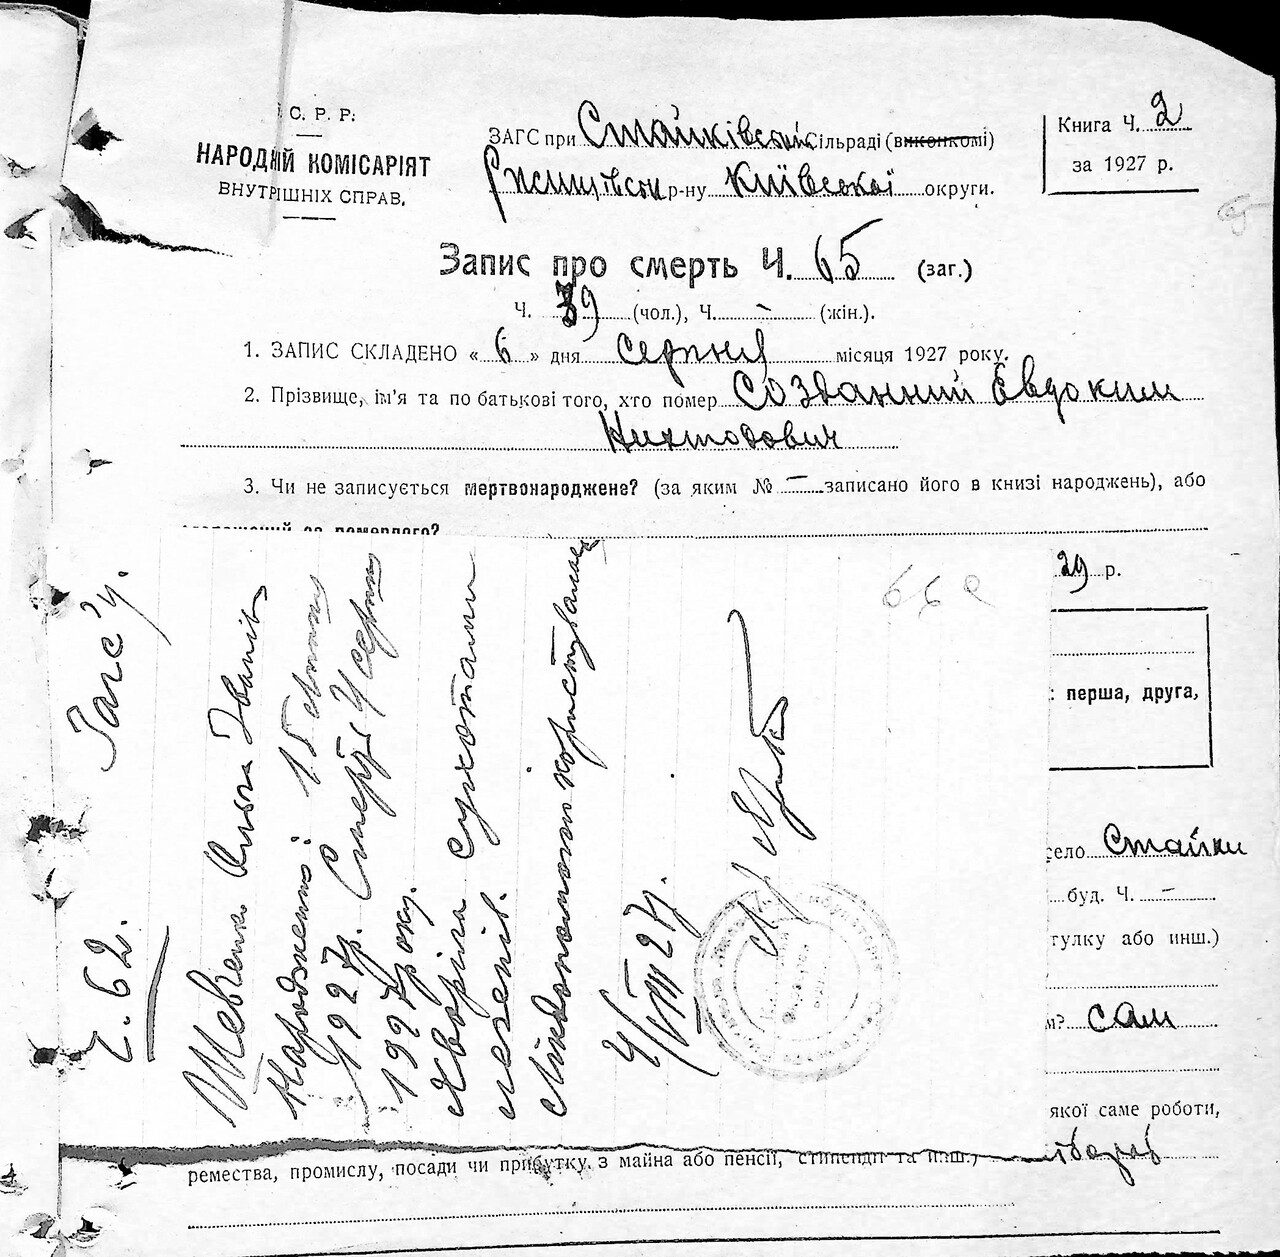 С. Р. Р.
НАРОДНІЙ КОМІСАРІЯТ
ВНУТРІШНІХ СПРАВ.
ЗАГС при Стайківській сільраді (виконкомі)
р-ну Київської округи.
Книга Ч. 2
за 1927 р.
Запис про смерть Ч. 65 (заг.)
Ч. 39 (чол.), Ч. – (жін.).
1. ЗАПИС СКЛАДЕНО « 6 » дня серпня місяця 1927 року.
2. Прізвище, ім'я та по батькові того, хто помер Созданний Евдоким
3. Чи не записується мертвонароджене? (за яким № – записано його в книзі народжень), або
29 р.
перша, друга,
село Стайки
буд. Ч. –
тулку або инш.)
м? сам
якої саме роботи,
ремества, промислу, посади чи прибутку з майна або пенсії, стипендії та инш.)
Загс'у.
Ч. 62.
Шевченко Ольга Іванів
Народження: 15
1927 р. Смерть 4 серпн
1927 року.
Хворіла сухотами
легенів.
Лікдопомогою користувалась
4/VIII 27 р.
66